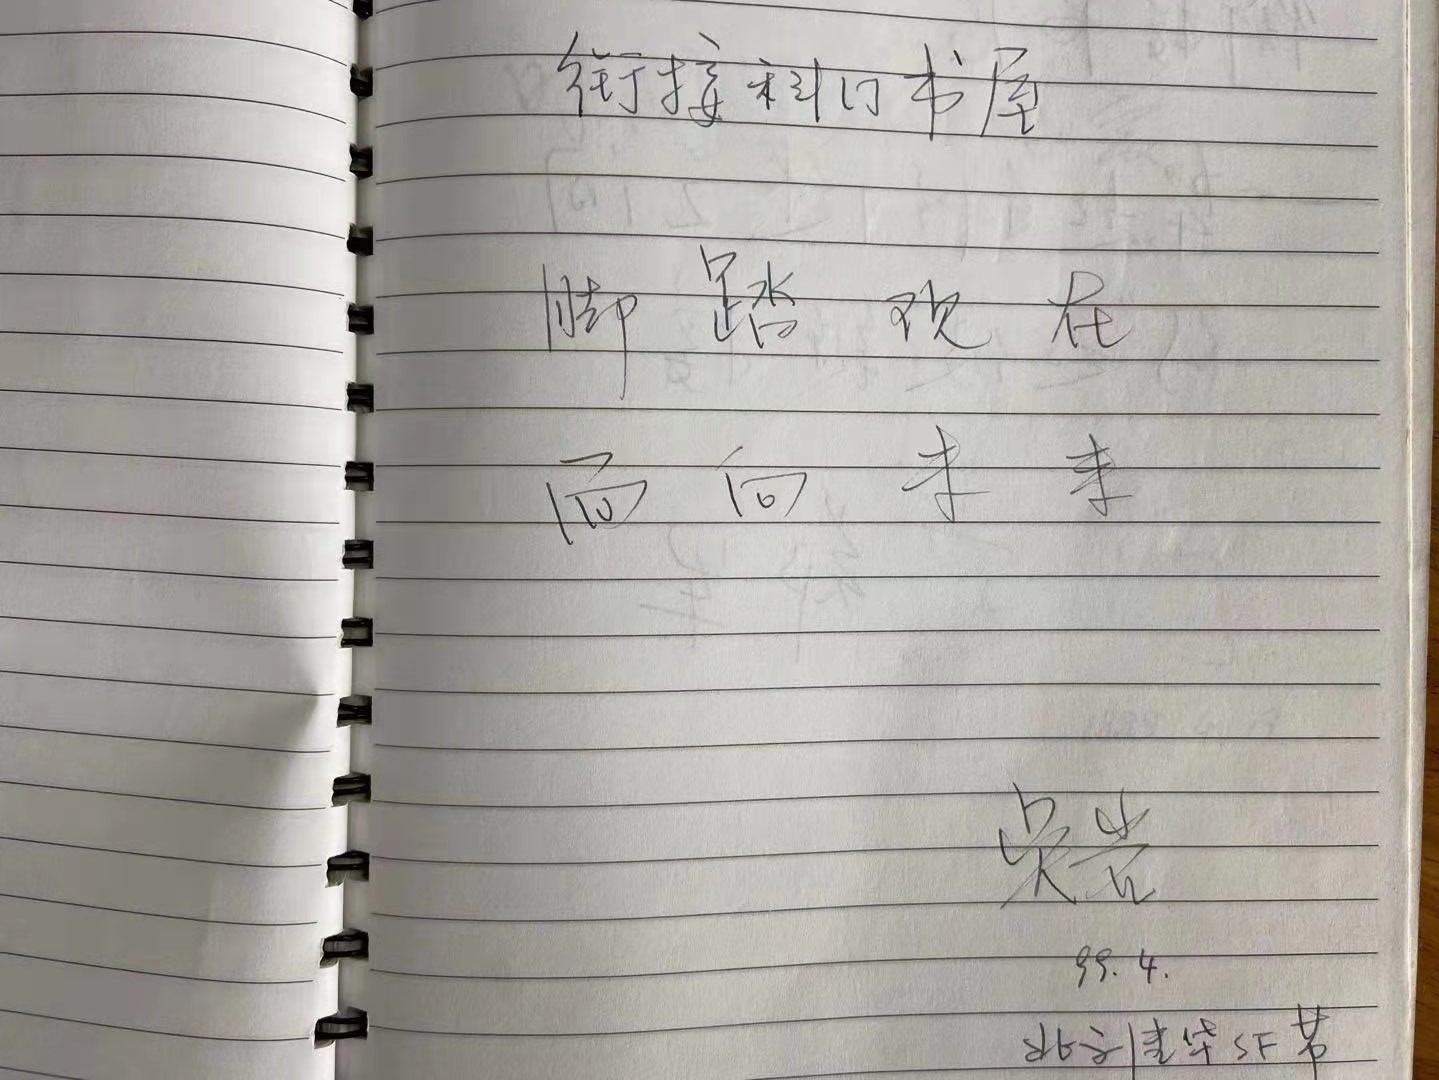 衔接科幻书屋
脚踏现在
面向未来
吴岩
99.4.
北京清华SF节